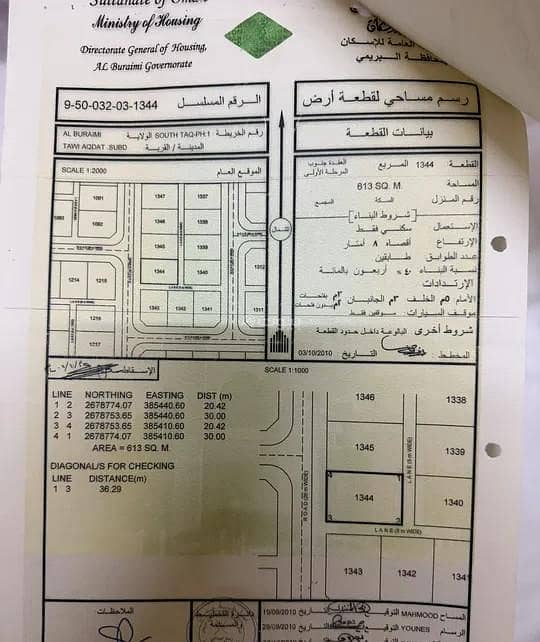 Sultanate of Oman
Ministry of Housing
Directorate General of Housing,
AL Buraimi Governorate
العامة للإسكان
محافظة البريمي
رسم مساحي لقطعة أرض
الرقم المسلسل 9-50-032-03-1344
بيانات القطعة
رقم الخريطة SOUTH TAQ-PH:1 الولاية AL BURAIMI
المدينة / القرية TAWI AQDAT .SUBD
القطعة 1344 المربع العقدة جنوب
المرحلة الأولى
المساحة 613 SQ. M.
رقم المنزل السكة المجمع
[شروط البناء]
الإستعمال سكني فقط
الإرتفاع أقصاه ٨ أمتار
عدد الطوابق طابقين
نسبة البناء ٤٠٪ أربعون بالمائة
الإرتدادات
الأمام ٥م الخلف ٣م الجانبان ٣م بفتحات
٢م بدون فتحات
موقف السيارات موقفين فقط
شروط أخرى البالوعة داخل حدود القطعة
المخطط التاريخ 03/10/2010
SCALE 1:2000 الموقع العام
1081
1347
1337
1080
1346
1338
1345
1339
1344
1340
1311
1214
1218
1343
1342
1341
1312
1216
1217
الشمال
الإسقاط
SCALE 1:1000
LINE NORTHING EASTING DIST (m)
1 2 2678774.07 385440.60 20.42
2 3 2678753.65 385440.60 30.00
3 4 2678753.65 385410.60 20.42
4 1 2678774.07 385410.60 30.00
AREA = 613 SQ. M.
DIAGONAL/S FOR CHECKING
LINE DISTANCE(m)
1 3 36.29
1346
1338
1345
1339
1344
1340
ROAD (20 m WIDE)
LANE (5 m WIDE)
LANE (8 m WIDE)
1343
1342
1341
الملاحظات
المساح MAHMOOD التوقيع التاريخ 19/09/2010
YOUNES التوقيع التاريخ 29/09/2010